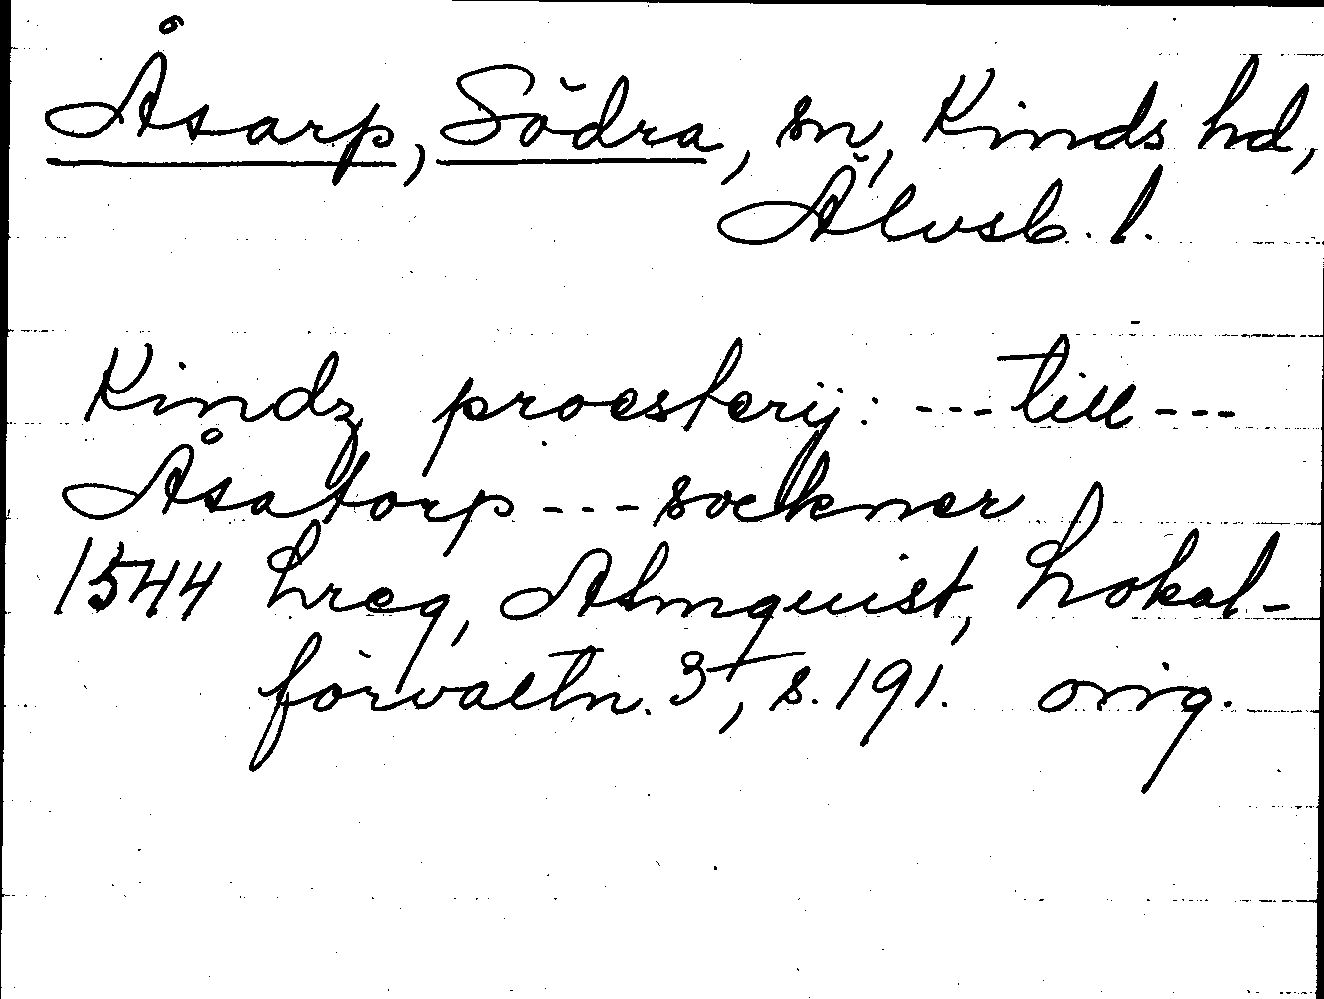 Åsarp, Södra, sn, Kinds hd,
Älvsb. l.
Kindz proesterij: --- till ---
Åsatorp --- sockner
1544 hreg, Almquist, Lokal-
förvaltn. 3, s. 191. orig.